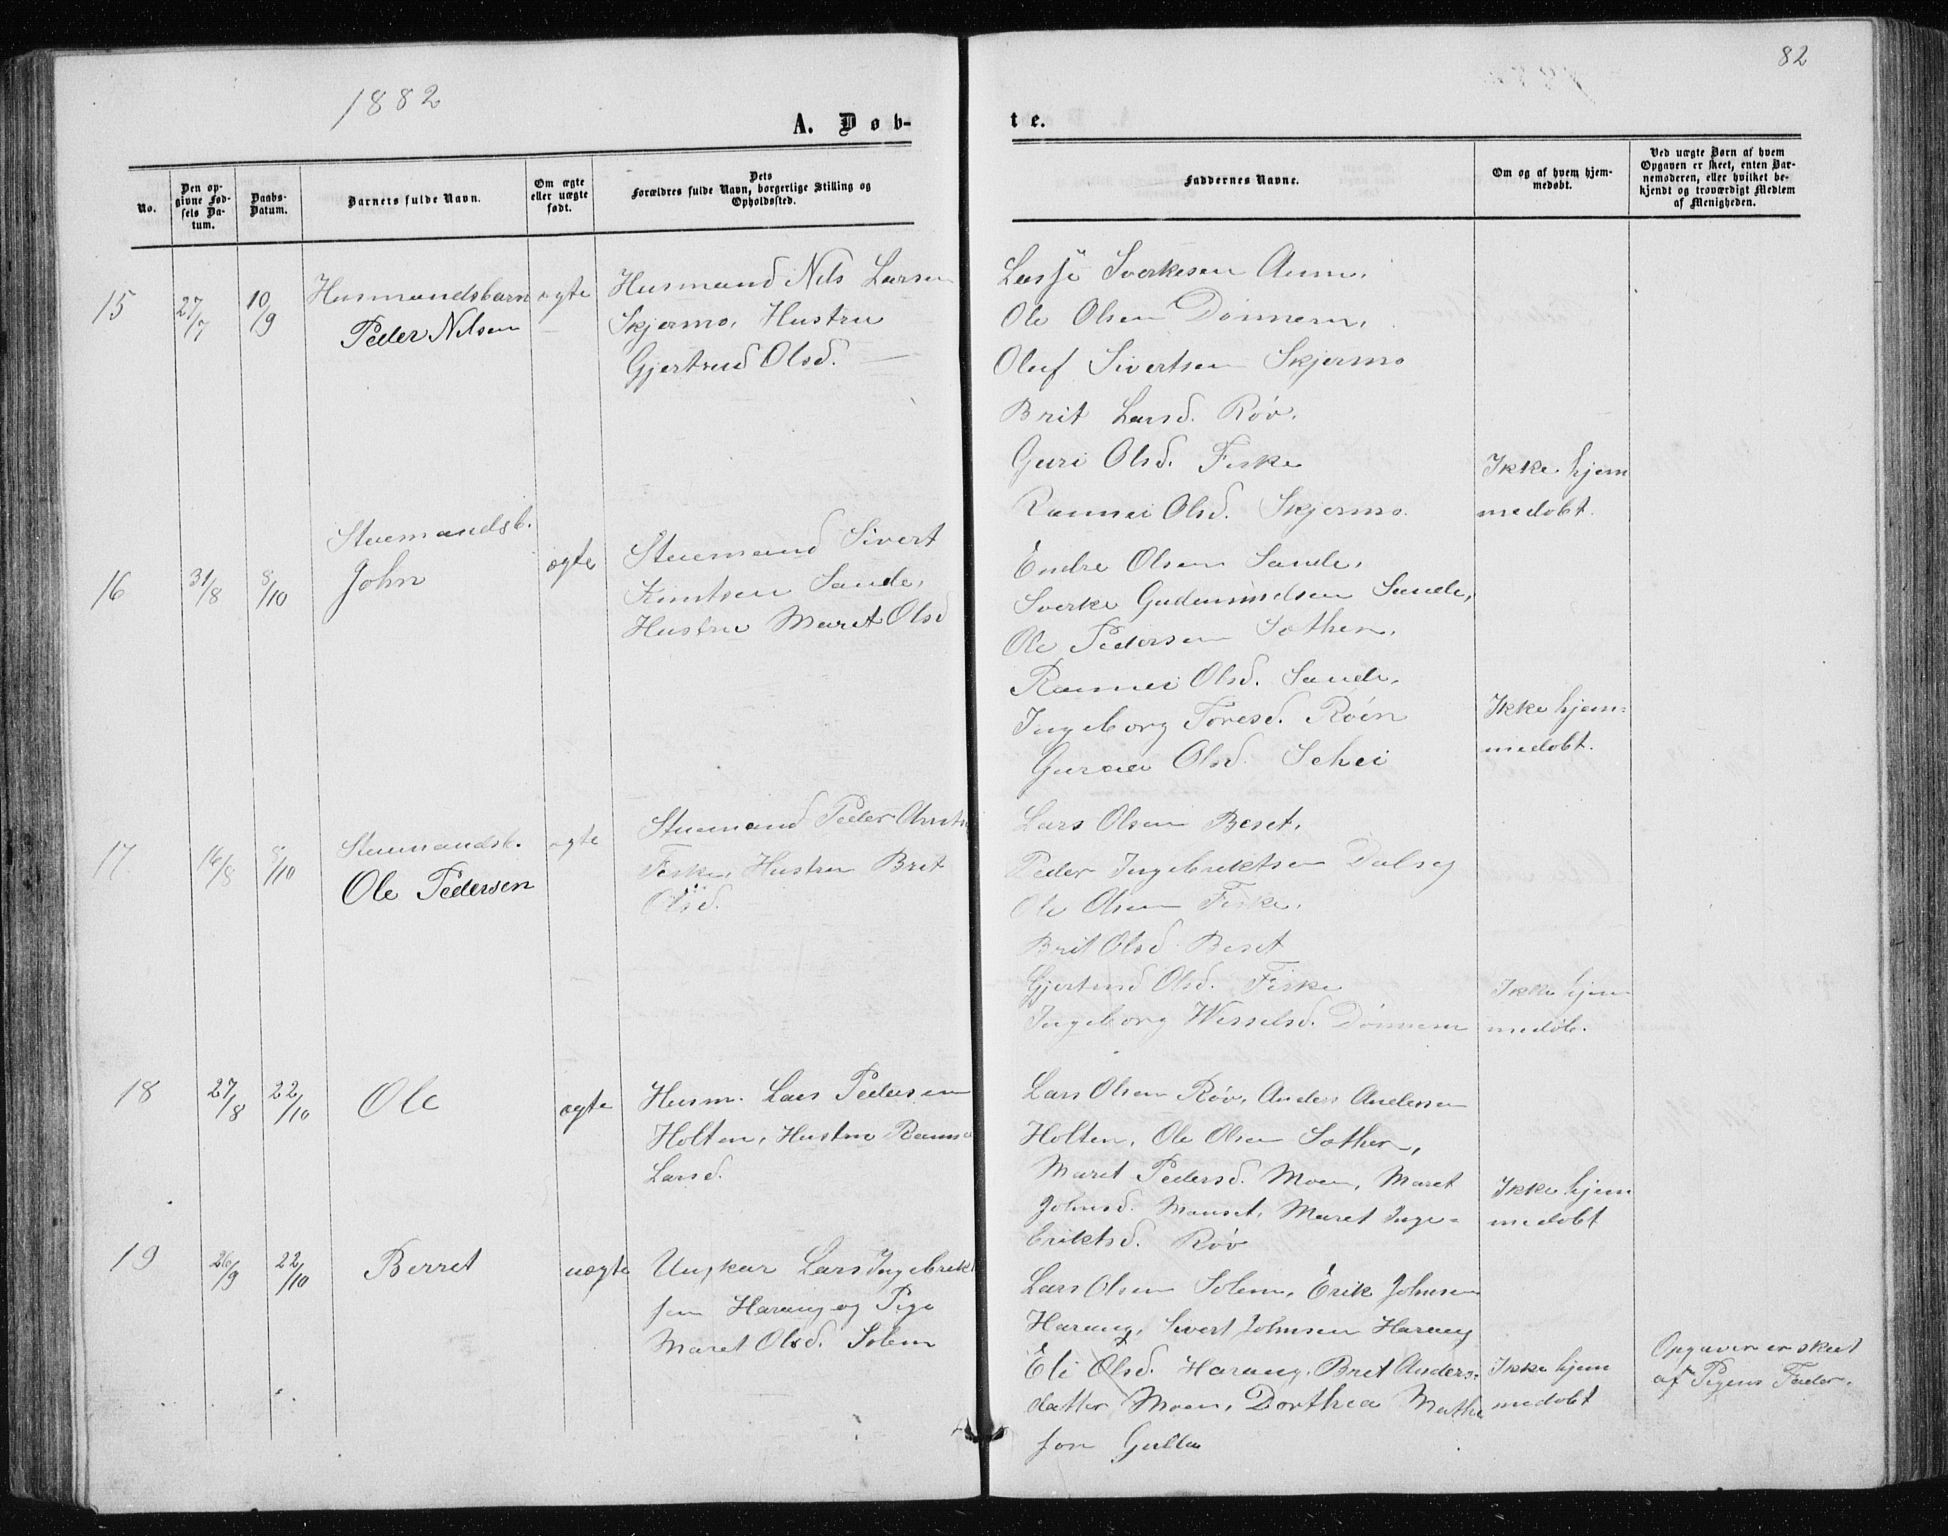 1882
82
A. Døb-
te.
No.
Den op-
givne Fød-
sels Da-
tum.
Daabs-
Datum.
Barnets fulde Navn.
Om ægte
eller uægte
født.
Dets
Forældres fulde Navn, borgerlige Stilling og
Opholdssted.
Faddernes Navne.
Om og af hvem hjem-
medøbt.
Ved uægte Børn af hvem
Opgaven er skeet, enten Bar-
nemoderen, eller hvilket be-
kjendt og troværdigt Medlem
af Menigheden.
15
27/7
10/9
Husmandsbarn
Peder Nilsen
ægte
Husmand Nils Larsen
Skjermo, Hustru
Gjertrud Olsd.
Sverkesen
Ole Olsen Dønnem,
Oluf Sivertsen Skjermo
Brit Larsd. Røv.
Guri Olsd. Fiske
Rannei Olsd. Skjermo.
Ikke hjem
medøbt.
16
31/8
8/10
Stuemandsb.
John
ægte
Stuemand Sivert
Knutsen Sande,
Hustru Maret Olsd
Endre Olsen Sande,
Sverke Gudmundsen Sande,
Ole Pedersen Sæther,
Rannei Olsd. Sande,
Ingeborg Toresd. Røen
Guraa Olsd. Schei
Ikke hjem=
medøbt.
17
16/8
8/10
Stuemandsb.
Ole Pedersen
ægte
Stuemand Peder
Fiske, Hustru Brit
Olsd.
Lars Olsen Beset,
Peder Ingebriktsen Dalseg
Ole Olsen Fiske,
Brit Olsd Beset
Gjertrud Olsd. Fiske
Ingeborg Wesselsd. Dønnem
Ikke hjem
medøb.
18
27/8
22/10
Ole
ægte
Husm. Lars Pedersen
Holten, Hustru
Larsd.
Lars Olsen Røv, Anders Andersen
Holten, Ole Olsen Sæther,
Maret Pedersd. Moen, Maret
Johnsd. Mauset, Maret Inge=
briktsd. Røv
Ikke hjem
medøbt
19
26/9
22/10
Berret
uægte
Ungkar Lars Ingebrikt
sen Harang og Pige
Maret Olsd. Solem
Lars Olsen Solem, Erik Johnsen
Harang, Sivert Johnsen Harang
Eli Olsd. Harang, Brit Anders=
datter Moen, Dorthea Mathe
son Gulla
Ikke hjem
medøbt
Opgaven er skeet
af Pigens Fader.